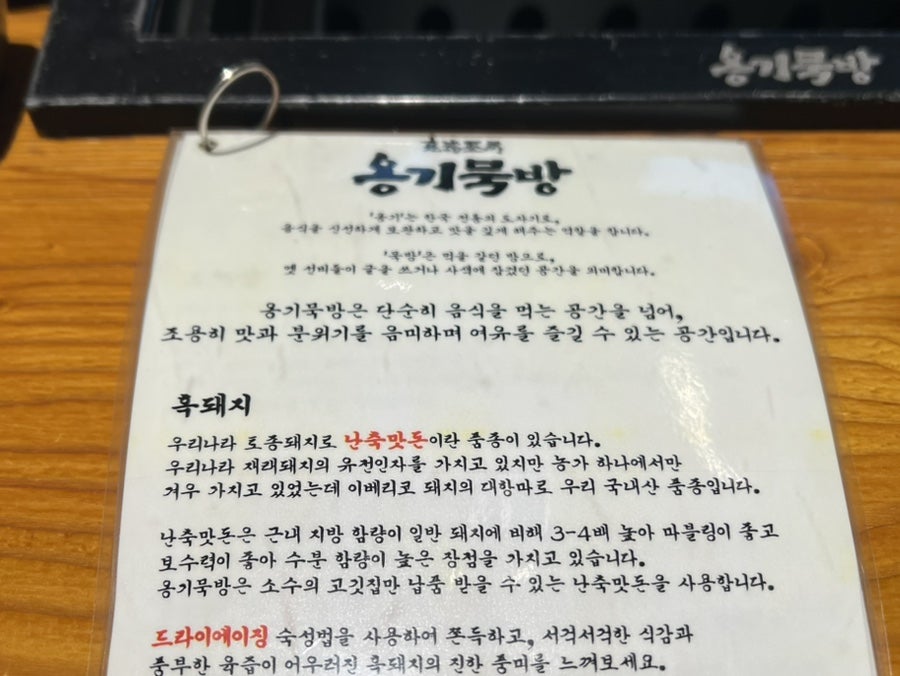 옹기묵방
옹기묵방
'옹기'는 한국 전통의 도자기로,
음식을 신선하게 보관하고 맛을 깊게 해주는 역할을 합니다.
'묵방'은 먹을 갈던 방으로,
옛 선비들이 글을 쓰거나 사색에 잠겼던 공간을 의미합니다.
옹기묵방은 단순히 음식을 먹는 공간을 넘어,
조용히 맛과 분위기를 음미하며 여유를 즐길 수 있는 공간입니다.
흑돼지
우리나라 토종돼지로 난축맛돈이란 품종이 있습니다.
우리나라 재래돼지의 유전인자를 가지고 있지만 농가 하나에서만
겨우 가지고 있었는데 이베리코 돼지의 대항마로 우리 국내산 품종입니다.
난축맛돈은 근내 지방 함량이 일반 돼지에 비해 3-4배 높아 마블링이 좋고
보수력이 좋아 수분 함량이 높은 장점을 가지고 있습니다.
옹기묵방은 소수의 고깃집만 납품 받을 수 있는 난축맛돈을 사용합니다.
드라이에이징 숙성법을 사용하여 쫀득하고, 서걱서걱한 식감과
풍부한 육즙이 어우러진 흑돼지의 진한 풍미를 느껴보세요.